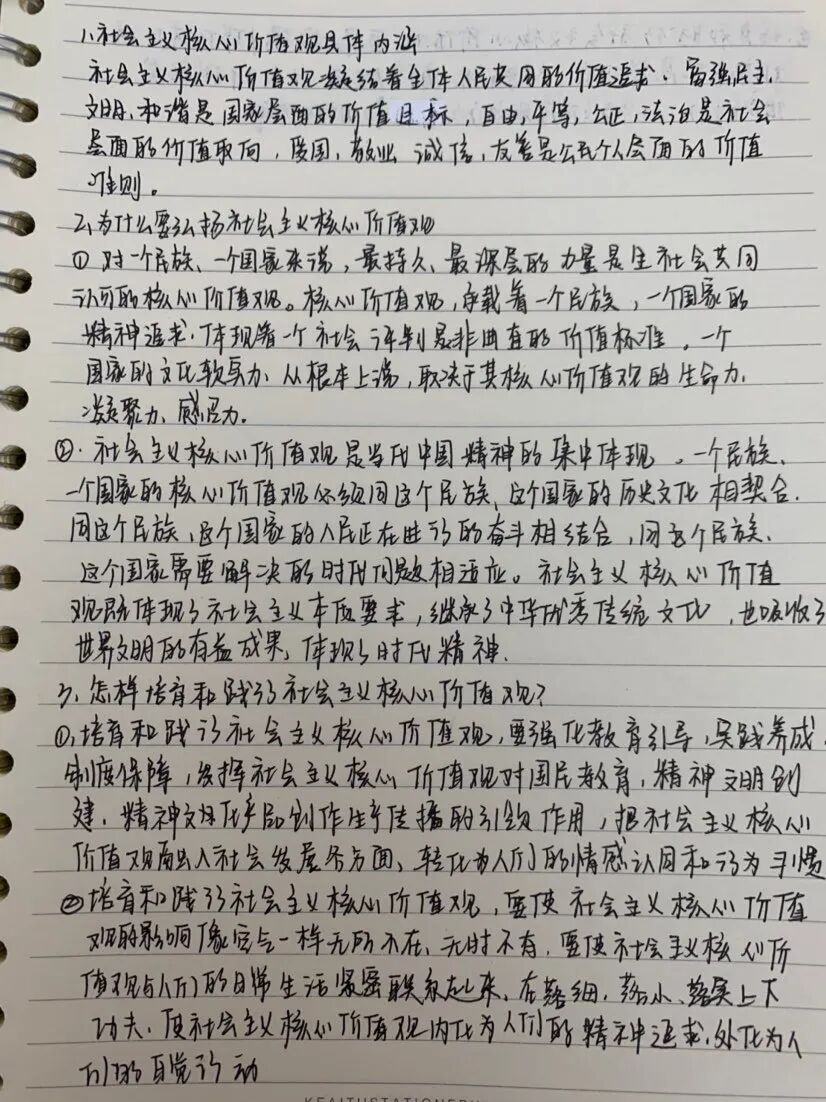 1.社会主义核心价值观具体内涵
社会主义核心价值观凝结着全体人民共同的价值追求.富强民主,
文明,和谐是国家层面的价值目标,自由,平等,公正,法治是社会
层面的价值取向,爱国,敬业 诚信,友善是公民个人层面的价值
准则。
2.为什么要弘扬社会主义核心价值观
① 对一个民族、一个国家来说,最持久、最深层的力量是全社会共同
认可的核心价值观。核心价值观,承载着一个民族,一个国家的
精神追求.体现着一个社会评判是非曲直的价值标准。一个
国家的文化软实力.从根本上说,取决于其核心价值观的生命力.
凝聚力、感召力.
②.社会主义核心价值观是当代中国精神的集中体现。一个民族、
一个国家的核心价值观必须同这个民族、这个国家的历史文化相契合.
同这个民族,这个国家的人民正在进行的奋斗相结合,同这个民族、
这个国家需要解决的时代问题相适应。社会主义核心价值
观既体现了社会主义本质要求,继承了中华优秀传统文化,也吸收了
世界文明的有益成果,体现了时代精神.
3.怎样培育和践行社会主义核心价值观?
①,培育和践行社会主义核心价值观,要强化教育引导,实践养成,
制度保障,发挥社会主义核心价值观对国民教育,精神文明创
建.精神文化产品创作生产传播的引领作用,把社会主义核心
价值观融入社会发展各方面、转化为人们的情感认同和行为习惯
②培育和践行社会主义核心价值观,要使社会主义核心价值
观的影响像空气一样无所不在、无时不有,要使社会主义核心价
值观与人们的日常生活紧密联系起来、在落细,落小、落实上下
功夫.使社会主义核心价值观内化为人们的精神追求.外化为人
们的自觉行动